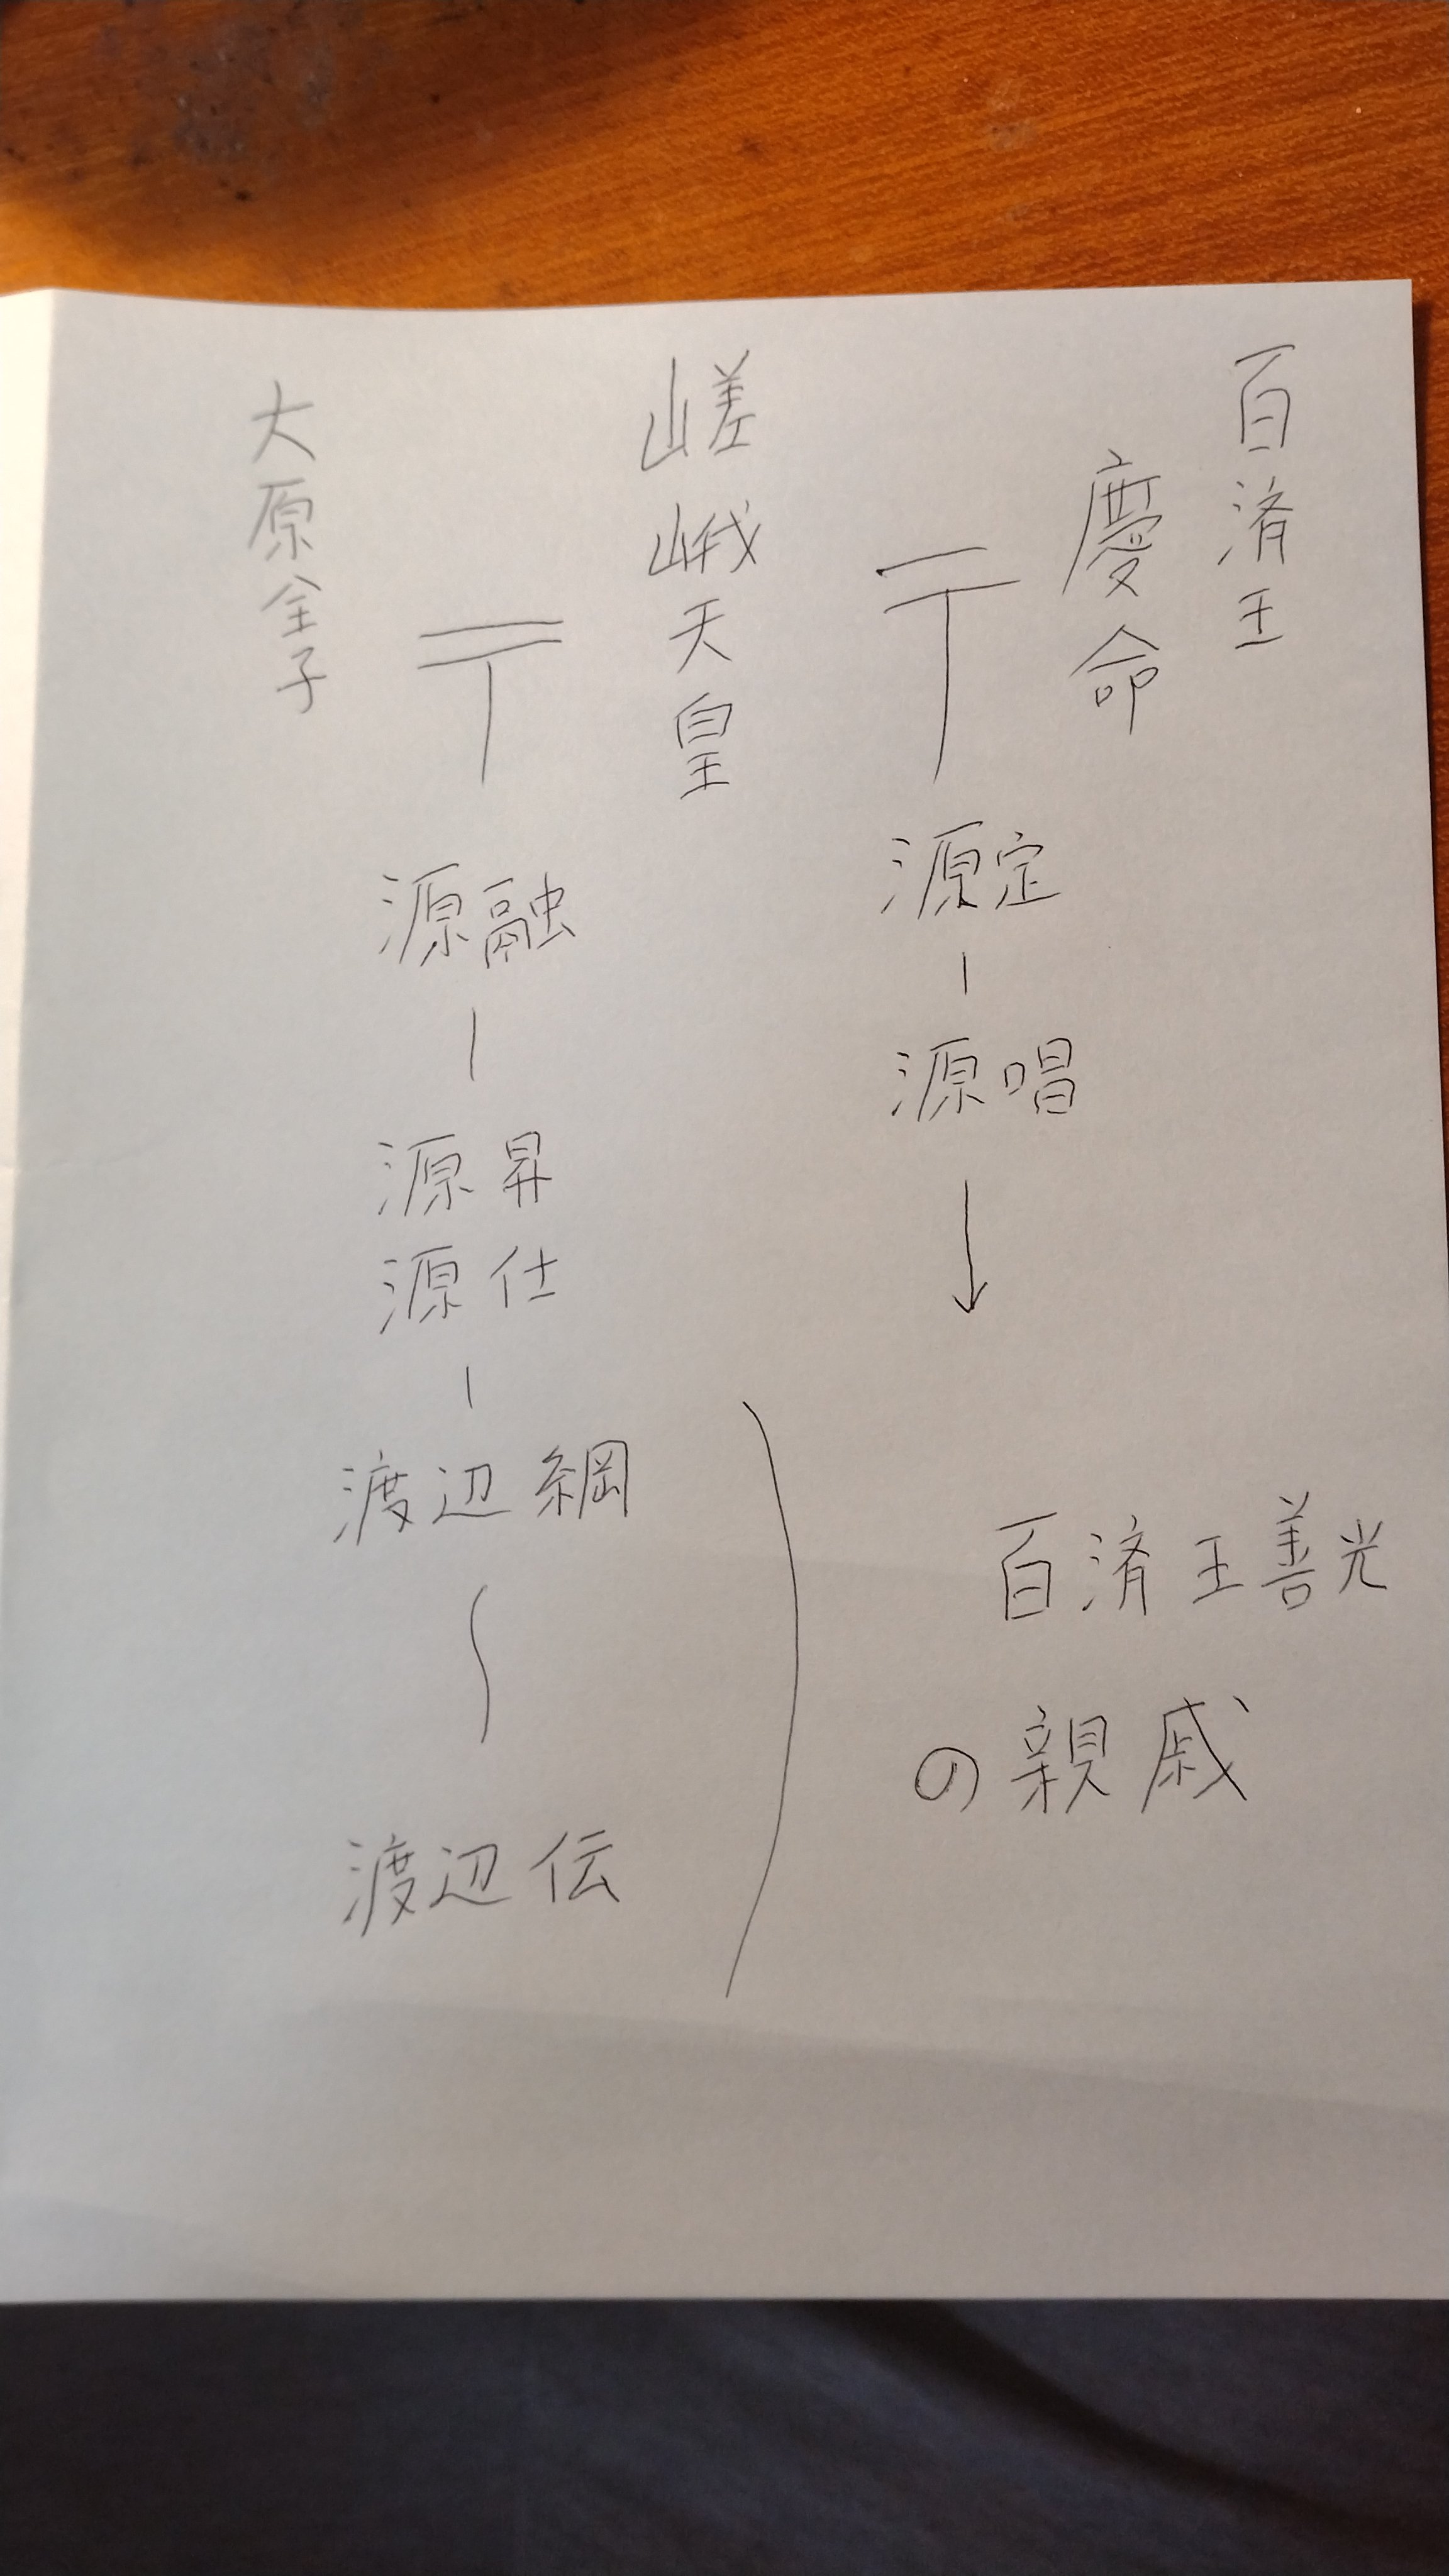 百済王
慶命
嵯峨天皇
大原全子
源定
源唱
源融
源昇
源仕
渡辺綱
渡辺伝
百済王善光
の親戚